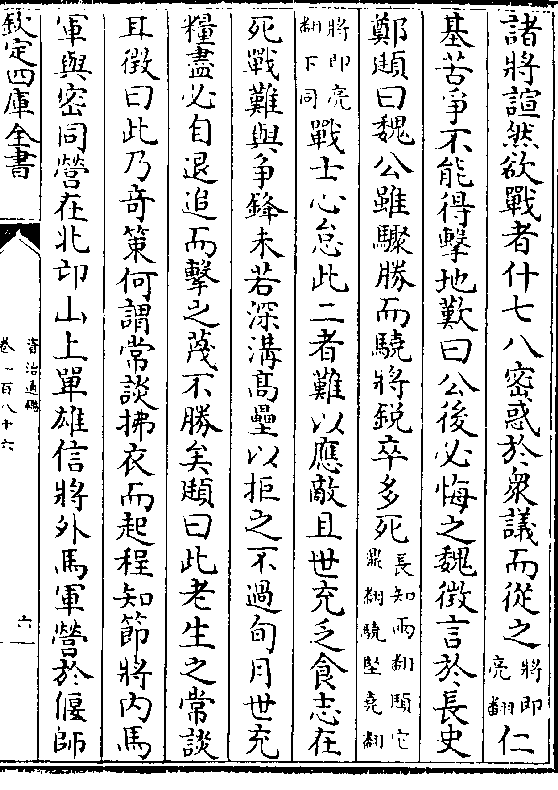 諸將諠然欲戰者什七八密惑於衆議而從之將即亮翻仁
基苦爭不能得擊地歎曰公後必悔之魏徵言於長史
鄭頲曰魏公雖驟勝而驍將鋭卒多死長知兩翻頲它鼎翻驍堅堯翻
將即亮翻下同戰士心怠此二者難以應敵且世充乏食志在
死戰難與爭鋒未若深溝髙壘以拒之不過旬月世充
糧盡必自退追而擊之蔑不勝矣頲曰此老生之常談
耳徵曰此乃奇策何謂常談拂衣而起程知節將内馬
軍與密同營在北邙山上單雄信將外馬軍營於偃師
欽定四庫全書
資治通鑑
卷一百八十六
六